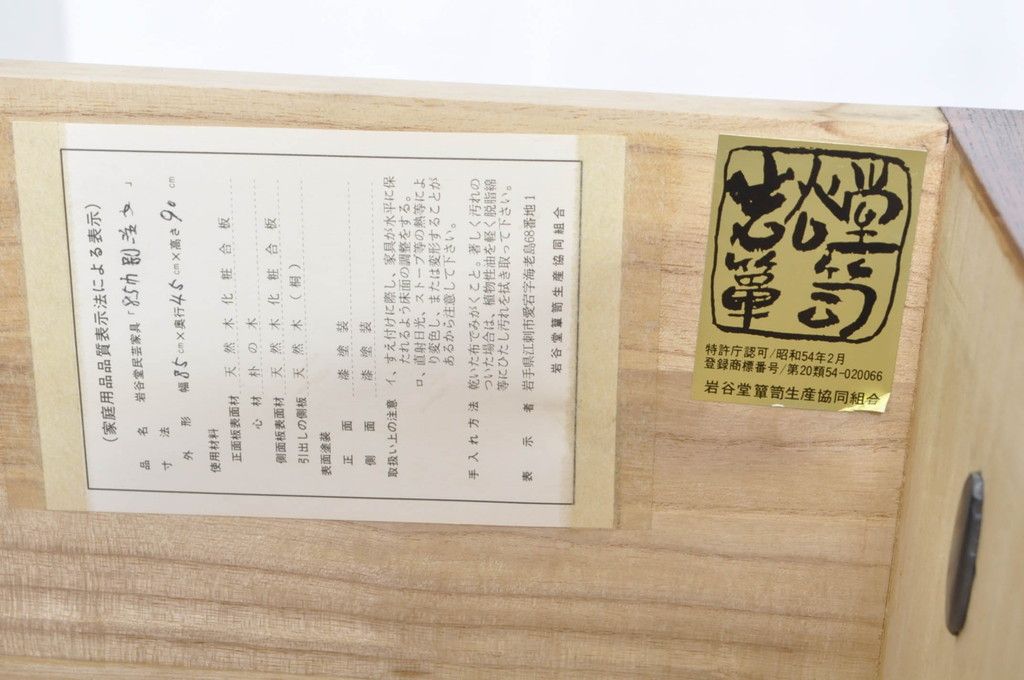 (家庭用品品質表示法による表示)
品名 岩谷堂民芸家具「85巾
寸法
外形 幅85cm×奥行45cm×高さ90cm
使用材料
正面板表面材 天然木化粧合板
心材 朴の木
側面板表面材 天然木化粧合板
引出しの側板 天然木(桐)
表面塗装
正面 漆塗装
側面 漆塗装
取扱い上の注意 イ、すえ付けに際し、家具が水平に保
たれるよう床面の調整をする。
ロ、直射日光、ストーブ等の熱等によ
り変色し、または変形することが
あるから注意して下さい。
手入れ方法 乾いた布でみがくこと。著しく汚れの
ついた場合は、植物性油を軽く脱脂綿
等にひたし汚れを拭き取って下さい。
表示者 岩手県江刺市愛宕字海老島68番地1
岩谷堂簞笥生産協同組合
岩谷堂
簞笥
特許庁認可/昭和54年2月
登録商標番号/第20類54-020066
岩谷堂簞笥生産協同組合